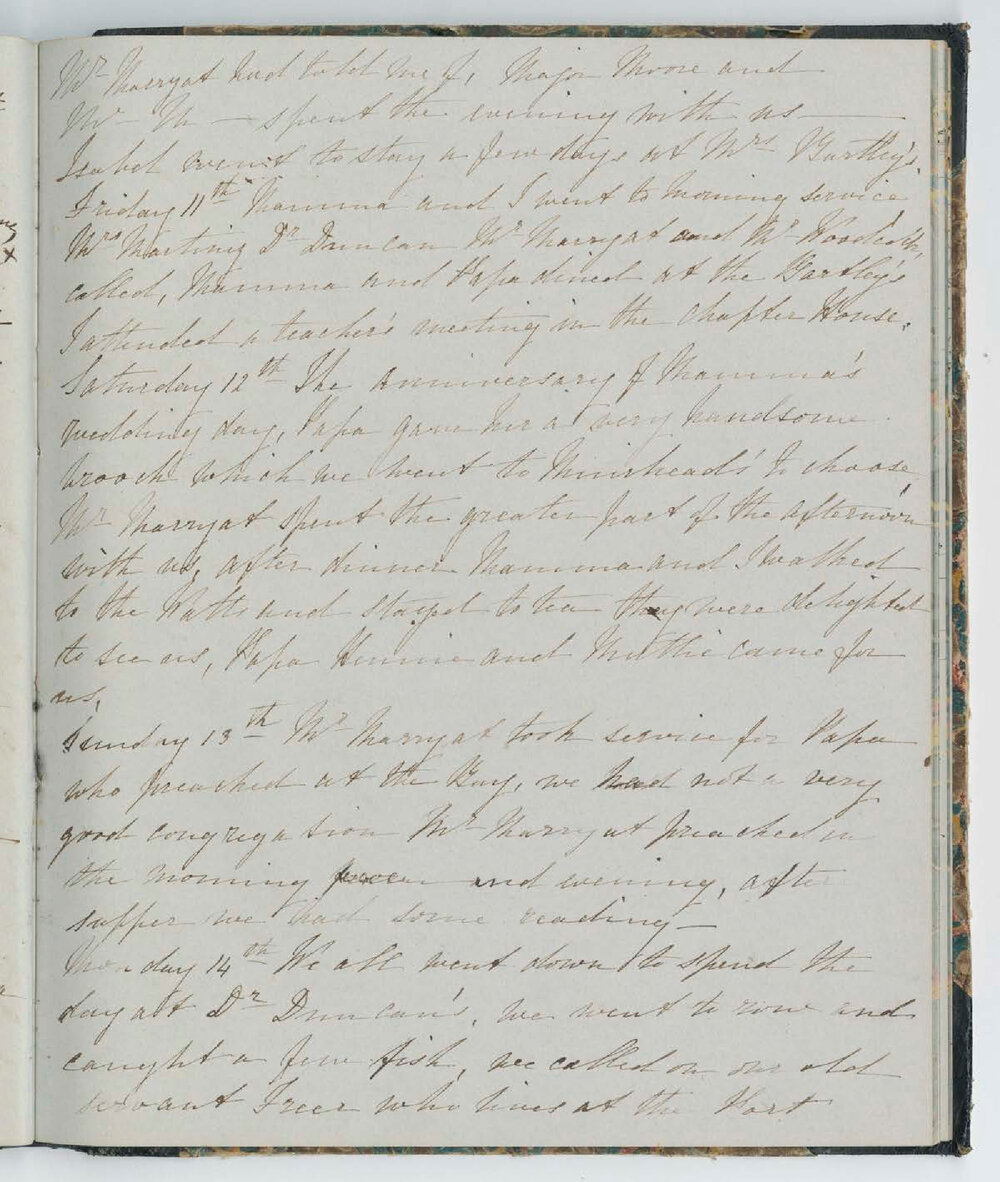 Mr Marryat had told me of, Major Moore and
Mr M — spent the evening with us —
Isabel went to stay a few days at Mrs Bartley's.
Friday 11th Mamma and I went to morning service
Mrs Dr Duncan Mr Marryat and Mr Woodcock,
called, Mamma and Papa dined at the Bartley's
I attended a teacher's meeting in the Chapter House.
Saturday 12th The anniversary of Mamma's
wedding day, Papa gave her a very handsome
brooch which we went to Muirhead's to choose,
Mr Marryat spent the greater part of the afternoon
with us, after dinner Mamma and I walked
to the Watts and stayed to tea they were delighted
to see us, Papa and came for
us,
Sunday 13th Mr Marryat took service for Papa
who preached at the Bay, we had not a very
good congregation Mr Marryat preached in
the morning and evening, after
supper we had some reading —
Monday 14th We all went down to spend the
day at Dr Duncan's, we went to row and
caught a few fish, we called on our old
servant Freer who lives at the Port